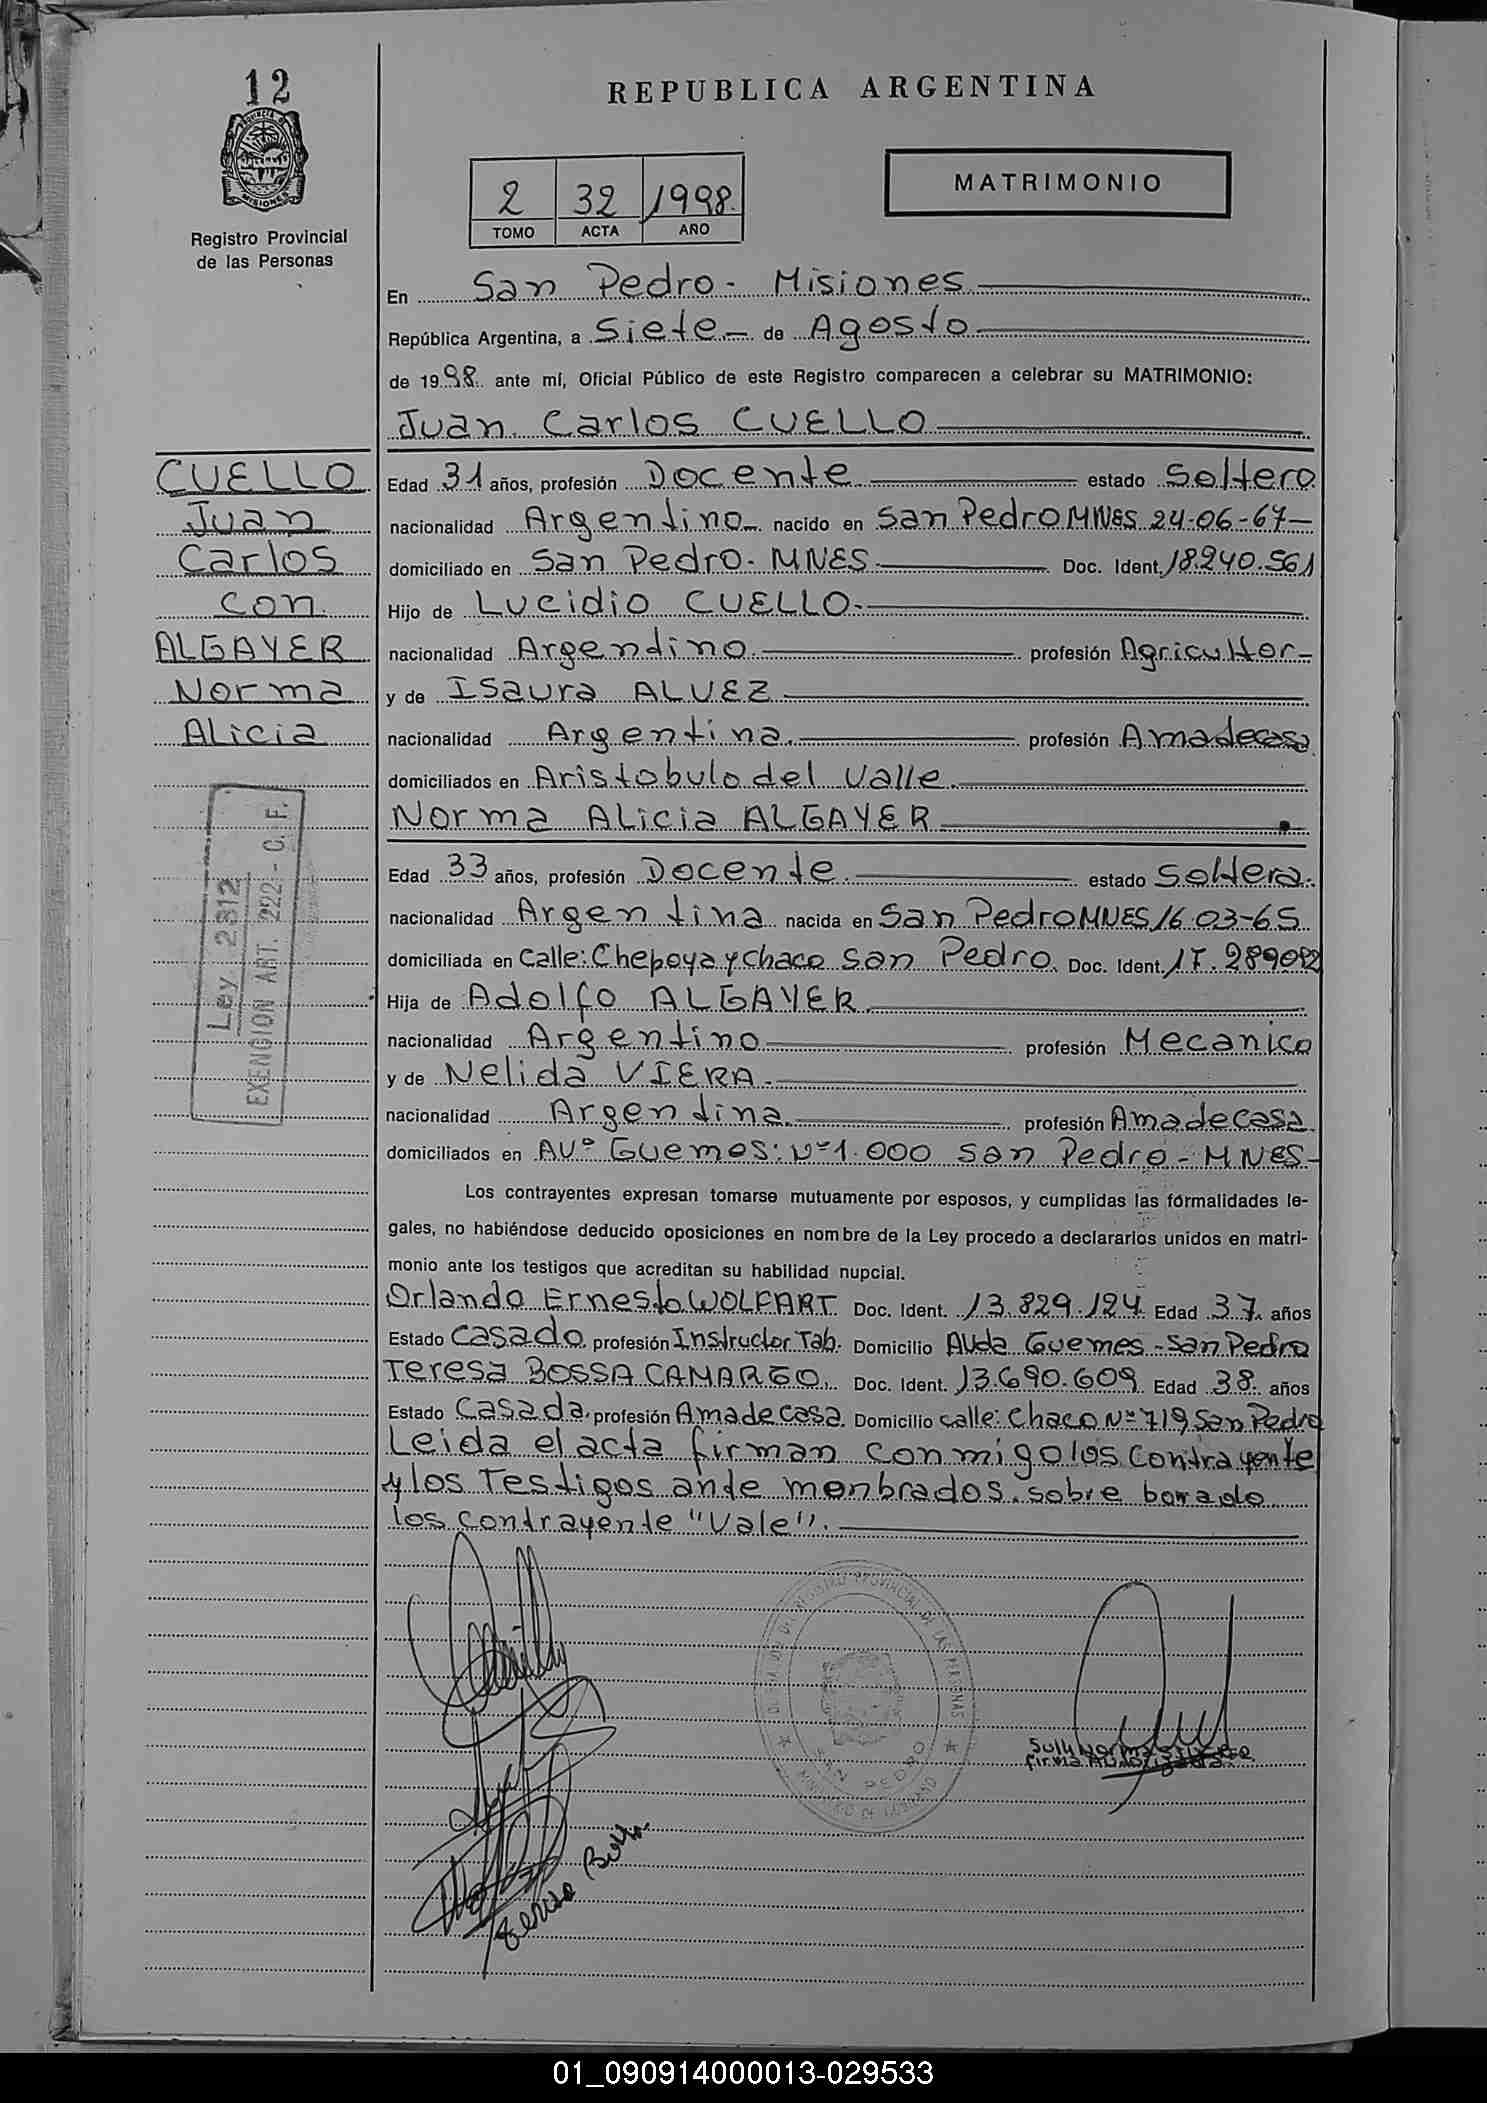 12
PROVINCIA DE
MISIONES
Registro Provincial
de las Personas
REPUBLICA ARGENTINA
2 32 1998.
TOMO ACTA AÑO
MATRIMONIO
En San Pedro - Misiones
República Argentina, a Siete de Agosto
de 1998 ante mí, Oficial Público de este Registro comparecen a celebrar su MATRIMONIO:
Juan Carlos CUELLO
CUELLO
Juan
Carlos
con
ALGAYER
Norma
Alicia
Ley 2812
EXENCION ART. 222 - C. F.
Edad 31 años, profesión Docente estado Soltero
nacionalidad Argentino nacido en San Pedro MNES 24-06-67
domiciliado en San Pedro - MNES Doc. Ident. 18.240.561
Hijo de Lucidio CUELLO
nacionalidad Argentino profesión Agricultor
y de Isaura ALVEZ
nacionalidad Argentina profesión Amadecasa
domiciliados en Aristobulo del Valle
Norma Alicia ALGAYER
Edad 33 años, profesión Docente estado Soltera
nacionalidad Argentina nacida en San Pedro MNES 16-03-65
domiciliada en Calle: Chepoya y chaco San Pedro Doc. Ident. 17.289092
Hija de Adolfo ALGAYER
nacionalidad Argentino profesión Mecanico
y de Nelida VIERA
nacionalidad Argentina profesión Amadecasa
domiciliados en AVº Guemes: Nº 1.000 San Pedro - MNES
Los contrayentes expresan tomarse mutuamente por esposos, y cumplidas las formalidades le-
gales, no habiéndose deducido oposiciones en nombre de la Ley procedo a declararlos unidos en matri-
monio ante los testigos que acreditan su habilidad nupcial.
Orlando Ernesto WOLFART Doc. Ident. 13.829.124 Edad 37 años
Estado Casado profesión Instructor Tab. Domicilio AVda Guemes - San Pedro
Teresa BOSSA CAMARGO Doc. Ident. 13.690.609 Edad 38 años
Estado Casada profesión Amadecasa Domicilio calle: Chaco Nº 719 San Pedro
Leida el acta firman conmigo los Contrayente
y los Testigos ante menbrados. sobre borrado
los contrayente "Vale".
REGISTRO PROVINCIAL DE LAS PERSONAS
SAN PEDRO
MINISTERIO DE GOBIERNO
firma Autorizada
01_090914000013-029533